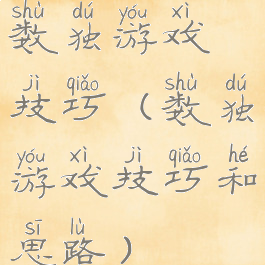 shù dú yóu xì
数独游戏
jì qiǎo shù dú
技巧（数独
yóu xì jì qiǎo hé
游戏技巧和
sī lù
思路）